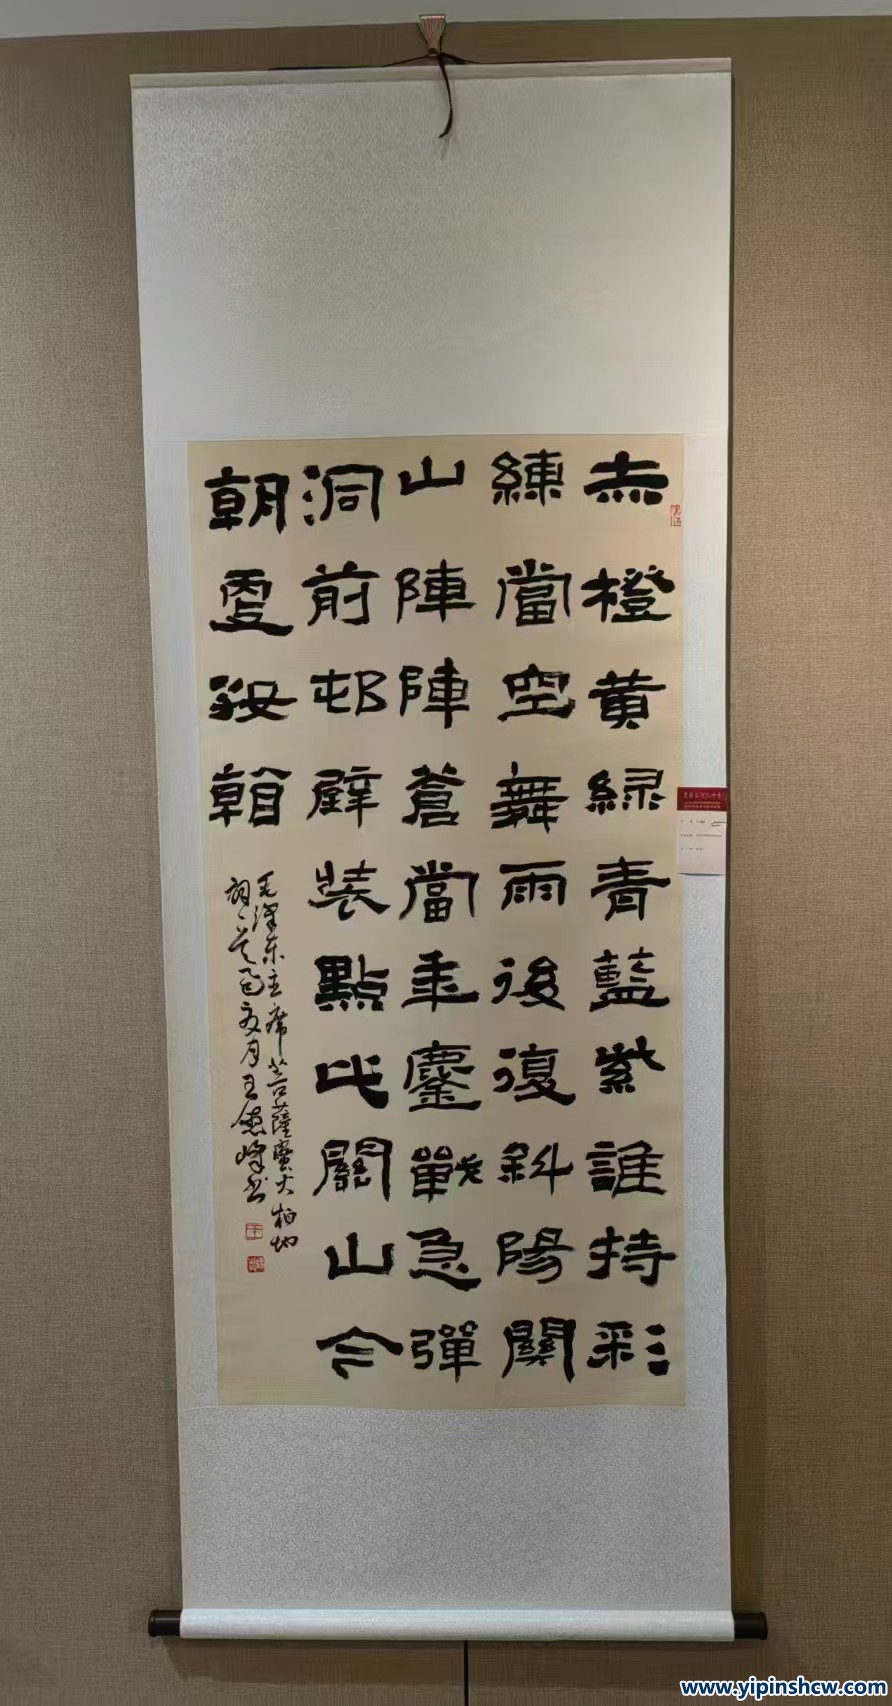 赤橙黄緑青藍紫誰持彩
練當空舞雨後復斜陽關
山陣陣蒼當年鏖戰急彈
洞前邨壁装點此關山今
朝更好看
毛澤东主席菩薩蠻大柏地
詞一首夏月王德峰书
www.yipinshcw.com